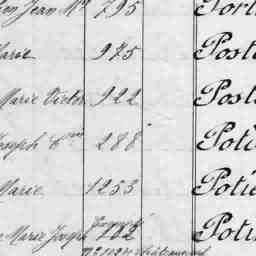 Jean Mie 795 Port
Marie 975 Post
Marie Victor 922 Post
Joseph 288 Poti
Marie 1253 Potie
Marie Joseph 102 Poti